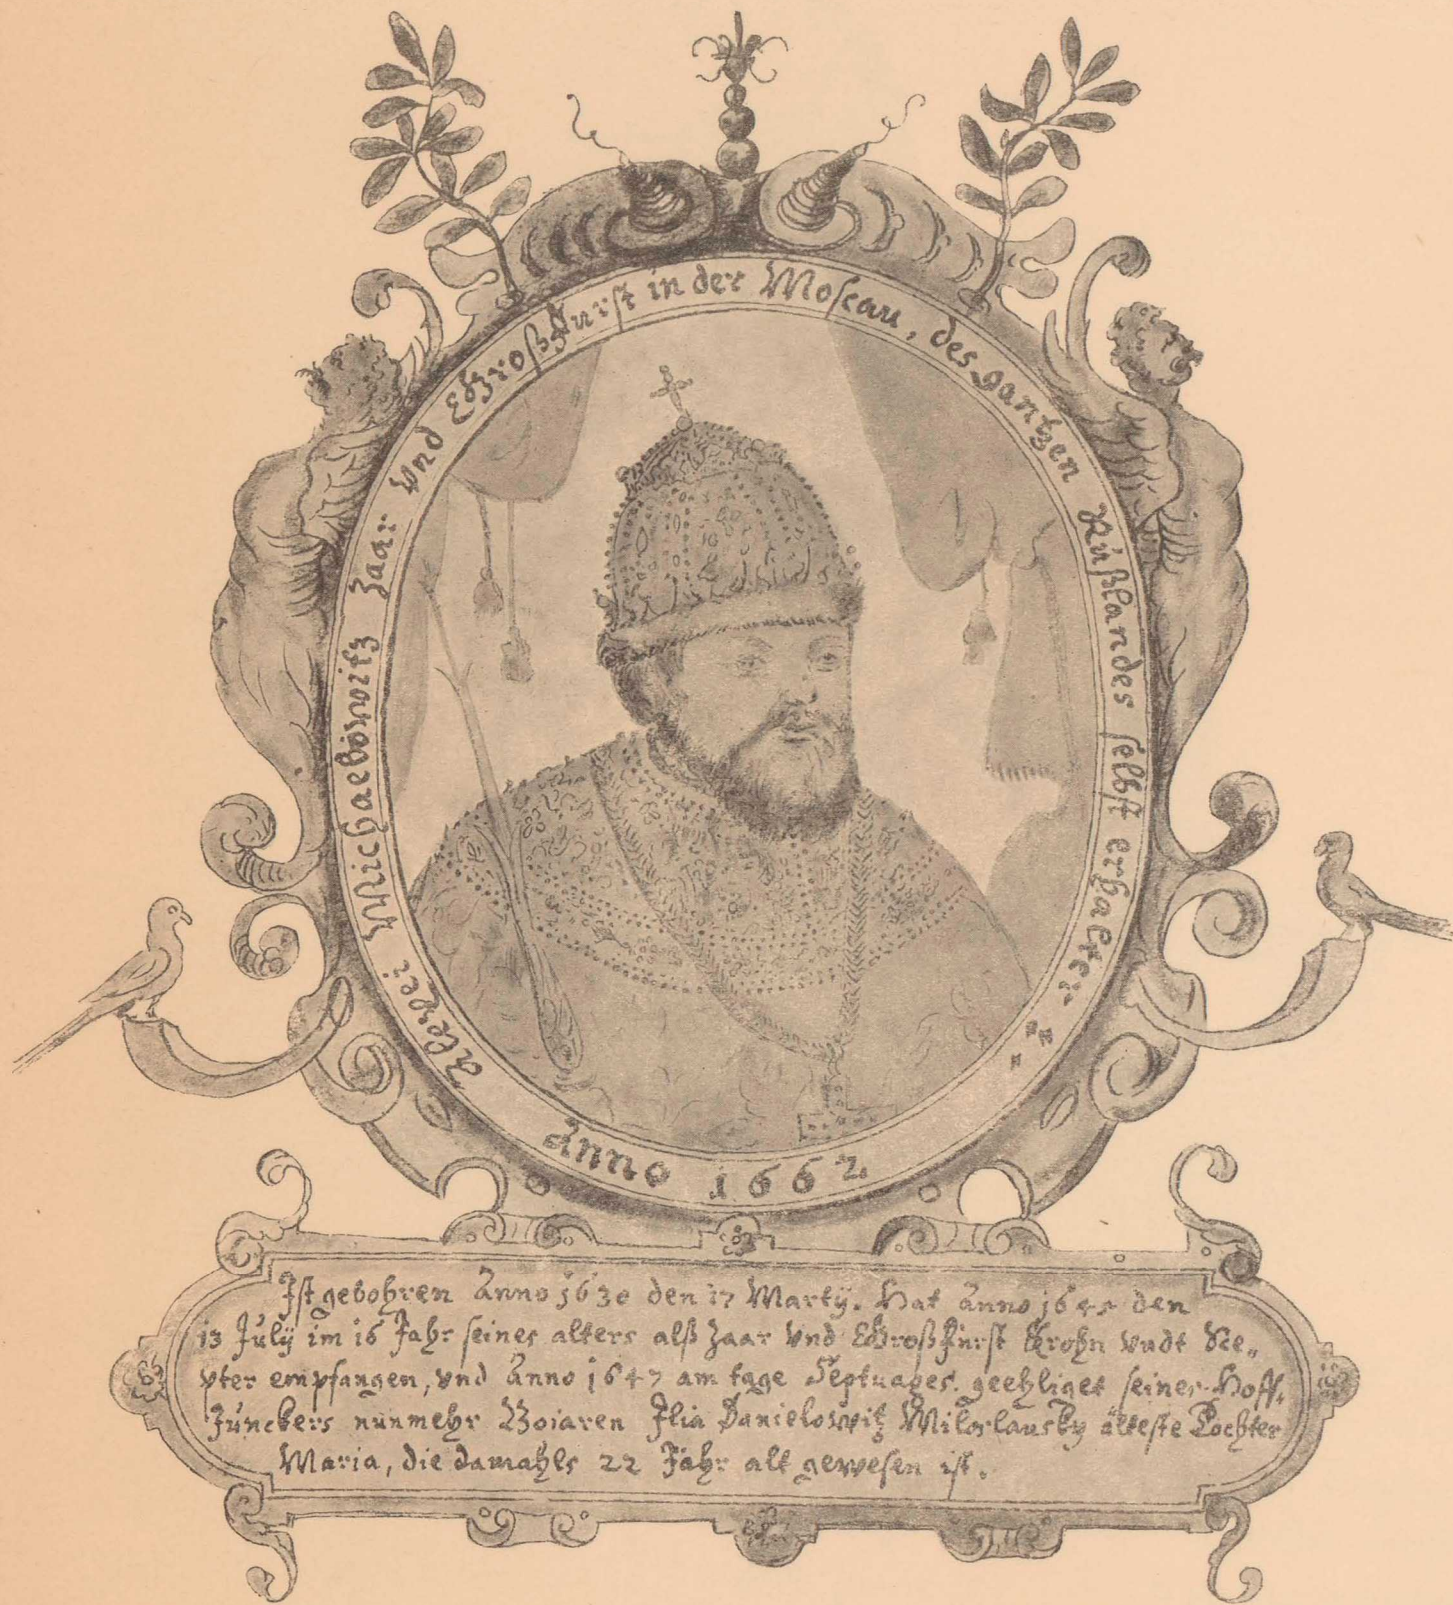 Alexei Michaelowitz Zaar vnd Großfurst in der Moscau, des gantzen Rußlandes selbst erhalter.
Anno 1662
Ist gebohren Anno 1630 den 17 Martÿ. Hat Anno 1645 den
13 Julÿ im 16 Jahr seines alters alß Zaar vnd Großfurst Krohn vndt Sce„
pter empfangen, vnd Anno 1647 am tage Septuages. geehliget seines Hoff„
Junckers nunmehr Boiaren Ilia Danielowitz Miloslausky älteste Tochter
Maria, die damahls 22 Jahr alt gewesen ist.